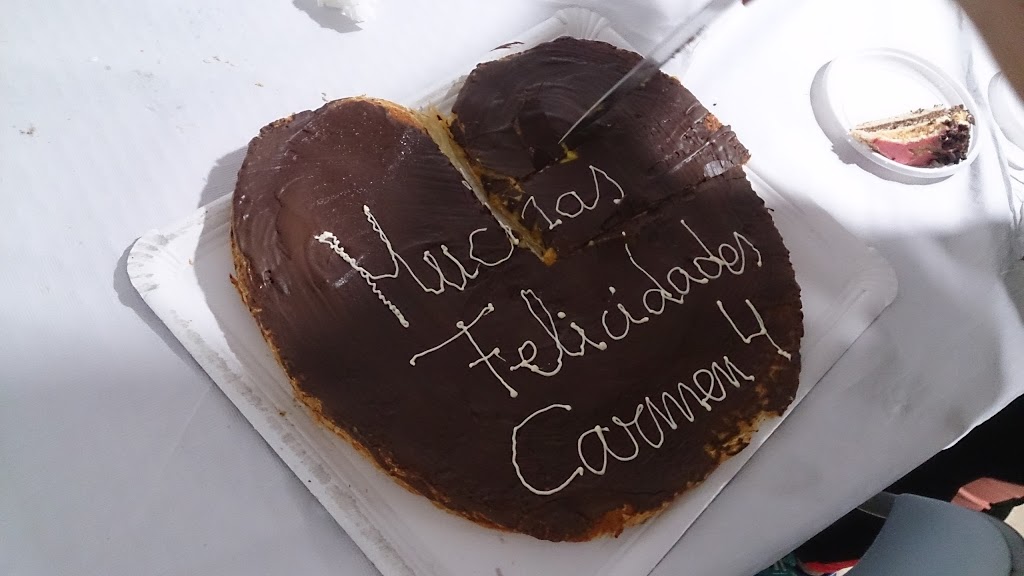 Muchas
Felicidades
Carmen 4